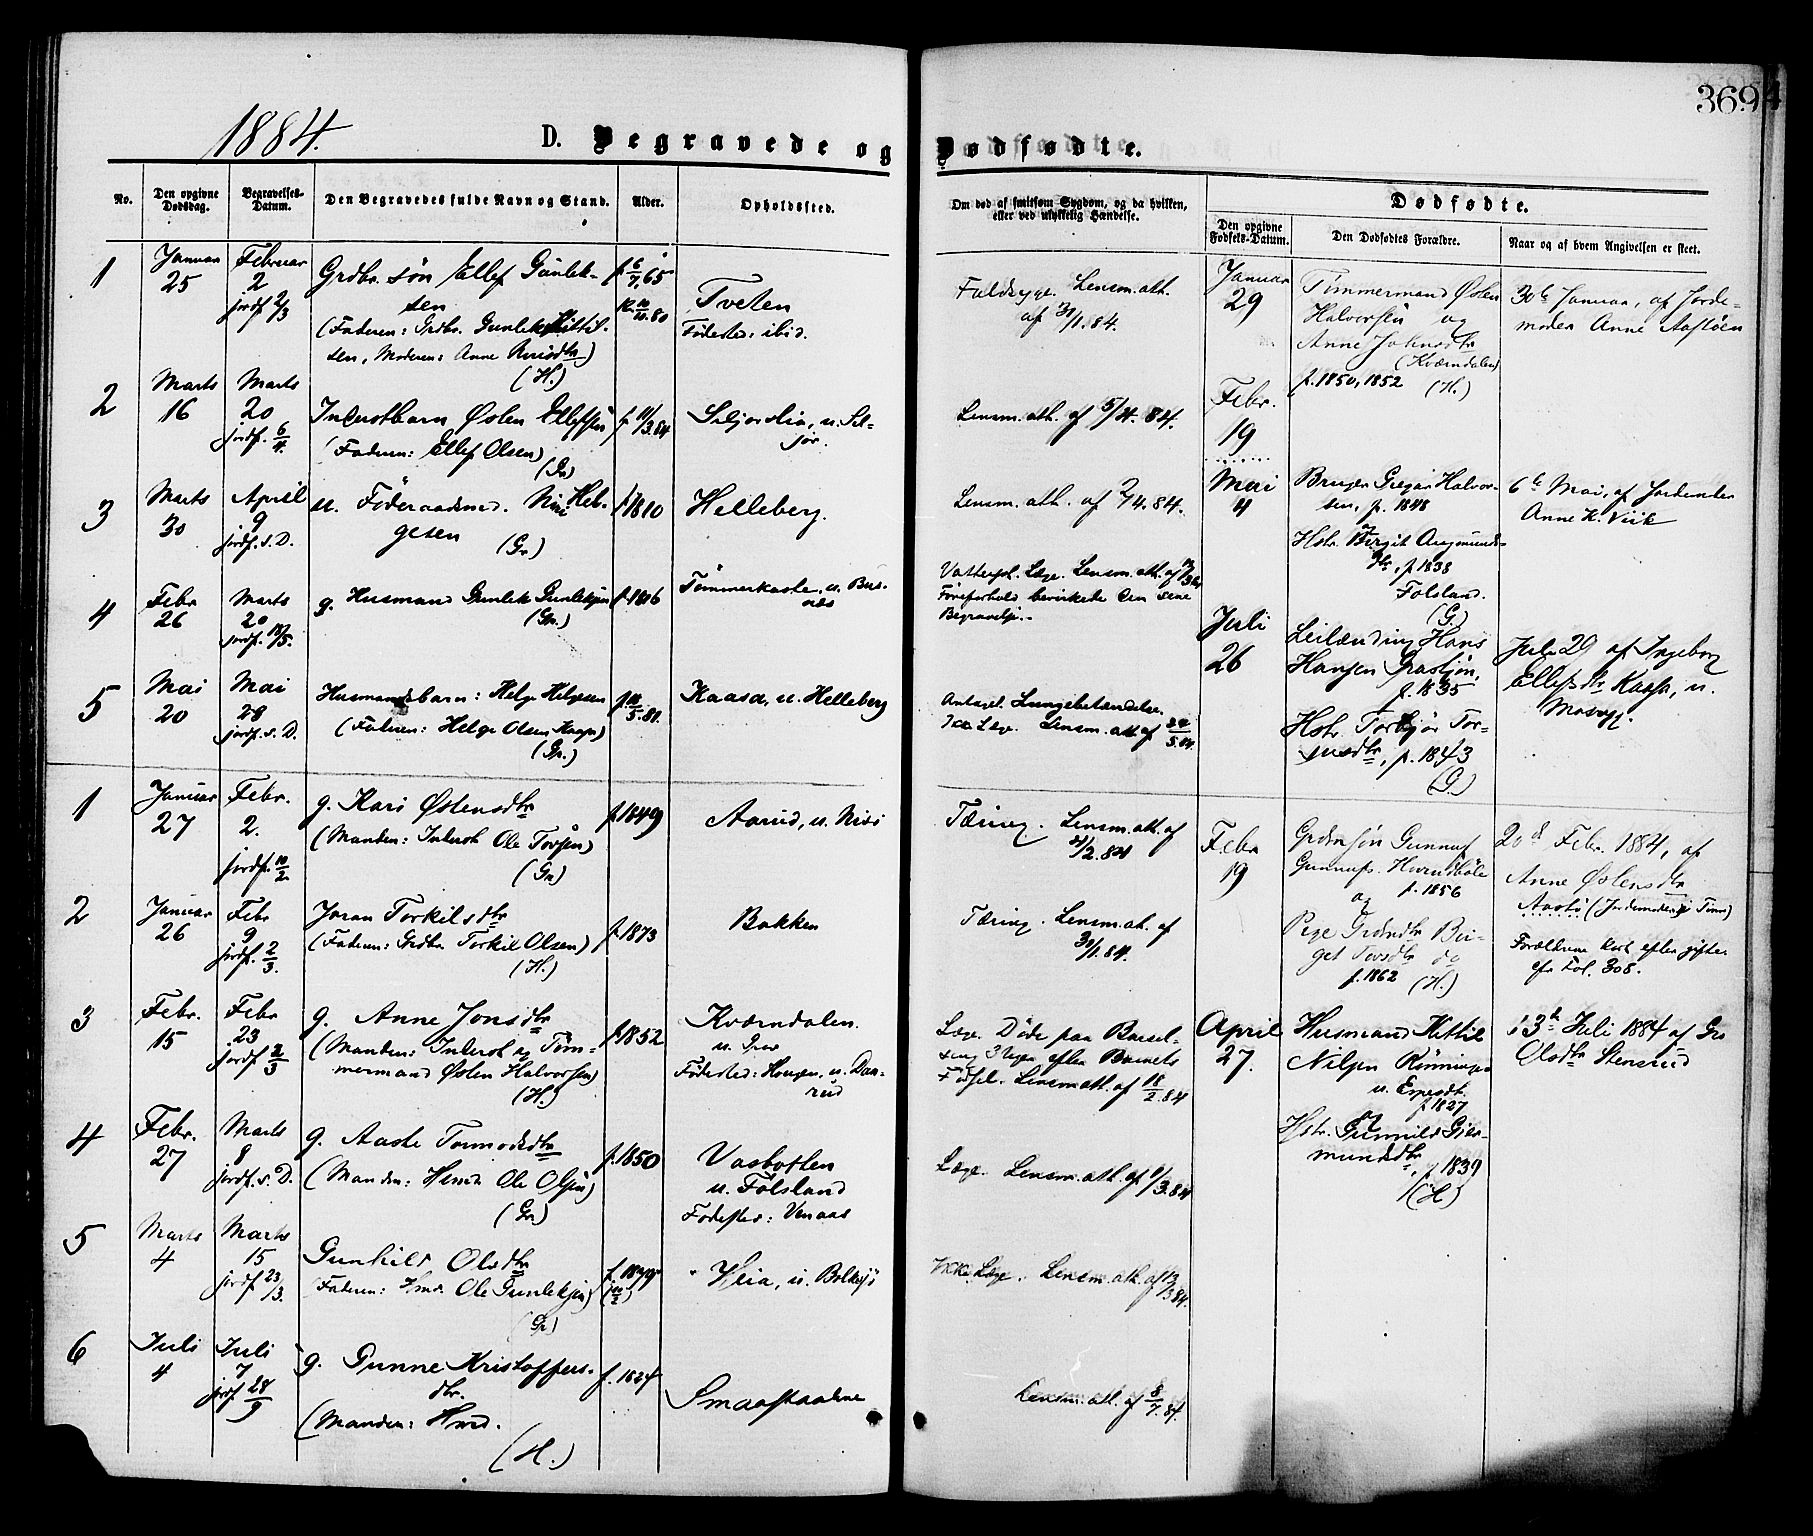 369
1884.
D. Begravede og Dødfødte.
No.
Den opgivne Dødsdag.
Begravelses-Datum.
Den Begravedes fulde Navn og Stand.
Alder.
Opholdssted.
Om død af smitsom Sygdom, og da hvilken,
eller ved ulykkelig Hændelse.
Dødfødte.
Den opgivne Fødsels-Datum.
Den Dødfødtes Forældre.
Naar og af hvem Angivelsen er skeet.
1
Januar 25
Februar 2
jordf. 2/3
Grdbr. søn Ellef Gunlek-
sen
(Faderen: Grdbr. Gunlek Kittil-
sen, Moderen: Anne
(H.)
Tveten
Fødested: ibid.
Faldsyge. Lensm. att.
af 31/1. 84.
2
Marts 16
Marts 20
jordf. 6/4.
Inderstbarn Østen Ellefsen
(Faderen: Ellef Olsen)
(Gr)
f. 11/3.84
Siljordlia, u. Sil-
jor.
Lensm. att. af 5/4. 84.
3
Marts 30
April 9
jordf. s. D.
u. Föderaadsmd. Hel-
gesen
(Gr.)
f. 1810
Helleberg.
Lensm. att. af 2/4. 84.
4
Febr 26
Marts 20
jordf. 18/5.
g. Husmand Gunlek Gunleksen
(Gr.)
f. 1806
Tømmerkaste, u. Bus-
næs
Læge. Lensm. att. af
Føreforhold bevirkede den sene
Begravelse.
5
Mai 20
Mai 28
jordf. s. D.
Husmandsbarn: Helge Helgesen
(Faderen: Helge Olsen Kaasa)
(Gr.)
Kaasa, u. Helleberg
Antaget Lungebetændelse.
Ikke Læge. Lensm. att. af
1
Januar 27
Febr. 2.
jordf. 10/2.
g. Kari Østensdtr
(Manden: Inderst Ole Tovsen)
(Gr)
f. 1849
Aarud, u. Nisi
Tæring. Lensm. att. af
2
Januar 26
Febr 9
jordf. 2/3.
Joran Torkilsdtr
(Faderen: Grdbr. Torkil Olsen)
(H.)
f. 1873
Bakken
Tæring. Lensm. att. af
31/1. 84.
3
Febr. 15
Febr 23
jordf. 2/3
g. Anne Jonsdtr
(Manden: Inderst og Tøm-
mermand Østen Halvorsen)
(H.)
f. 1852
Kværndalen.
Fødested: Haugen, u. Dan-
rud
Læge. Døde paa Barsel-
seng 3 Uger efter Barnets
Fødsel. Lensm. att. af 18/2. 84
4
Febr. 27
Marts 8
jordf. s. D.
g. Aaste Tormodsdtr
(Manden: Hsmd. Ole Olsen)
(Gr)
f. 1850
Vasbotten
u. Folsland
Fødested: Venaas
Læge. Lensm. att. af
5
Marts 4
Marts 15
jordf. 23/3.
Gunhild Olsdtr
(Faderen: Hmd. Ole Gunleksen)
(Gr)
Heia, u. Bolkesjø
Ikke Læge. Lensm. att. af 13/3 84.
6
Juli 4
Juli 7
g. Gunne Kristoffers-
dtr.
(Manden: Hmd.
(H.)
f. 1824
Lensm. att. af 8/7. 84.
Januar 29
Tømmermand Østen
Halvorsen og
Anne Johnsdtr
(Kværndalen)
f. 1850, 1852 (H.)
30te Januar, af Jorde-
moder Anne Aastøen
Febr. 19
Mai 4
Bruger Gregar Halvor-
sen, f. 1848
Hstr. Birgit Aamunds-
dtr, f. 1838
Folsland.
(G)
6te Mai, af Jordemoder
Anne K. Viik
Juli 26
Leilænding Hans
Hansen Grastjøn,
f. 1835
Hstr. Torbjør Tor-
f. 1843
(G.)
Juli 29 af Ingeborg
Ellefsdtr Kaasa, u.
Febr 19
Grdmsøn Gunnuf
Gunnufs. Hvrundbøle
f. 1856
og
Pige Grdmdtr Bir-
get Tovsdtr do
f. 1862 (H.)
20de Febr. 1884, af
Anne Østensdtr
Aastø (Jordemoder i Tinn)
Forældrene kort efter gifte
cfr Fol. 308.
April 27.
Husmand Kittil
Nilsen Rønningen
u. Espesdt.
f. 1827
og
Hstr. Gunnild Gjer-
mundsdtr, f. 1839
(H)
13de Juli 1884 af Gro
Olsdtr Stensrud